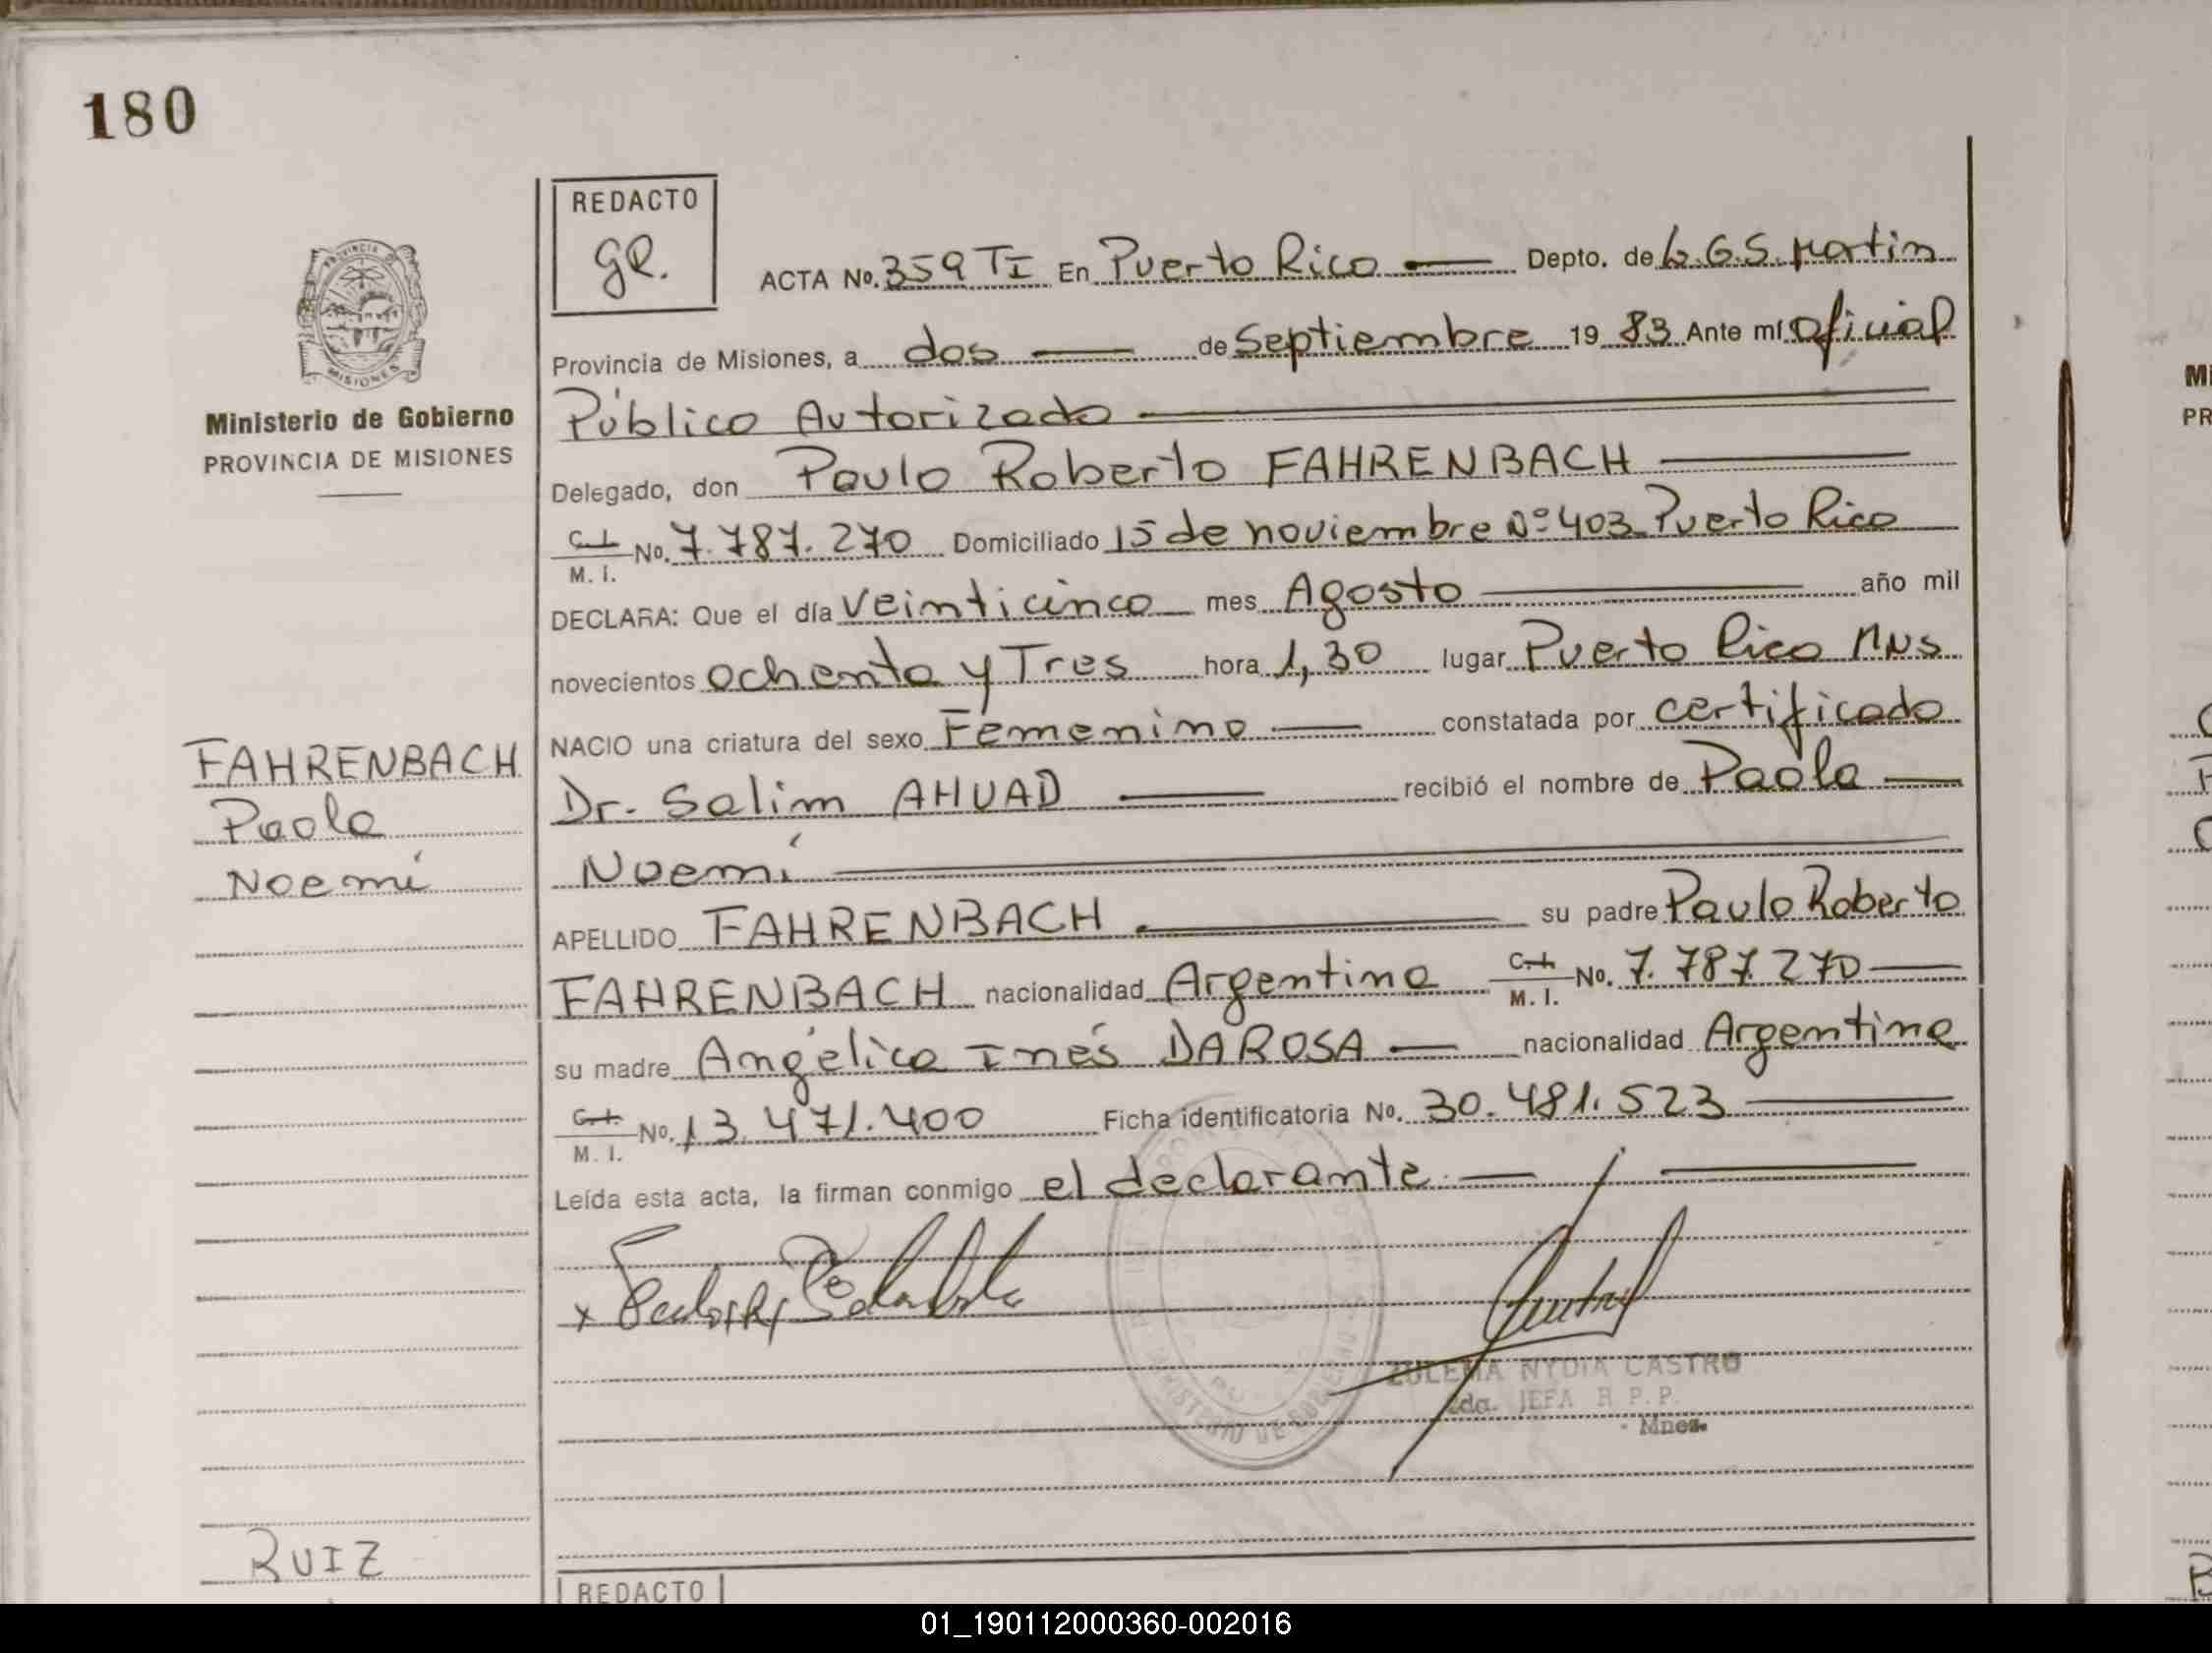 180
REDACTO
ge.
ACTA No. 359 TI En Puerto Rico — Depto. de L.G.S. Martin
Provincia de Misiones, a dos — de Septiembre 19 83 Ante mí Oficial
Público Autorizado
Delegado, don Paulo Roberto FAHRENBACH
C.I. M. I. No. 7.787.270 Domiciliado 15 de noviembre Nº 403 Puerto Rico
DECLARA: Que el día Veinticinco mes Agosto año mil
novecientos Ochenta y Tres hora 1,30 lugar Puerto Rico Mns
NACIO una criatura del sexo Femenino — constatada por certificado
Dr. Salim AHUAD — recibió el nombre de Paola —
Noemí
APELLIDO FAHRENBACH — su padre Paulo Roberto
FAHRENBACH nacionalidad Argentina C.I. M. I. No. 7.787.270 —
su madre Angélica Inés DAROSA — nacionalidad Argentina
C.I. M. I. No. 13.471.400 Ficha identificatoria No. 30.481.523 —
Leída esta acta, la firman conmigo el declarante. —
ZULEMA NYDIA CASTRO
2da. JEFA R P. P.
Mnes.
PROVINCIA
MISIONES
Ministerio de Gobierno
PROVINCIA DE MISIONES
FAHRENBACH
Paola
Noemí
RUIZ
REDACTO
Mi
PR
01_190112000360-002016